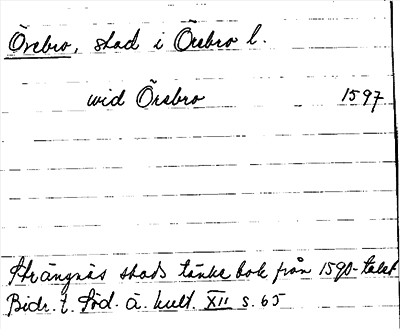 Örebro, stad i Örebro l.
wid Örebro 1597
Strängnäs stads tänke bok från 1590-talet.
Bidr. t. Söd. ä. kult. XII s. 65